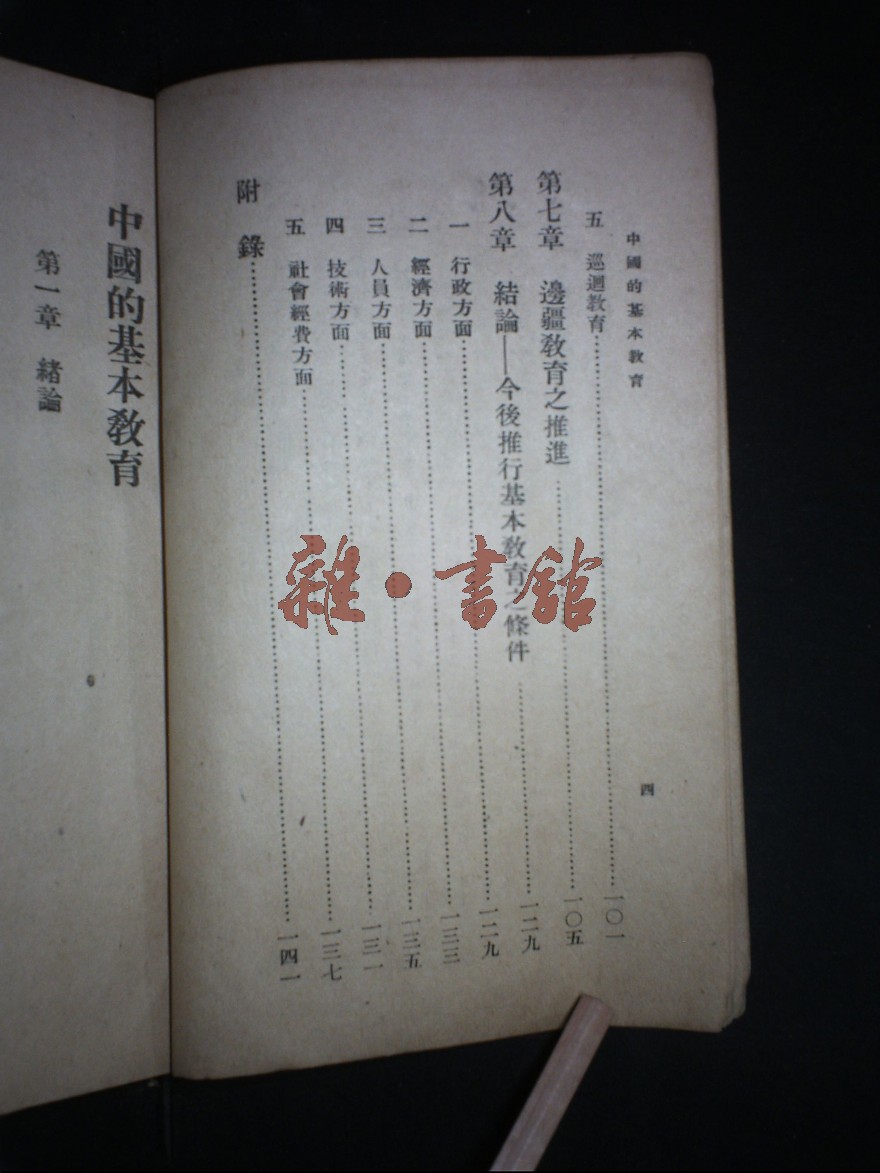 中國的基本教育
四
五 巡迴教育……一〇一
第七章 邊疆教育之推進……一〇五
第八章 結論—今後推行基本教育之條件……一二九
一 行政方面……一二九
二 經濟方面……一三三
三 人員方面……一三五
四 技術方面……一三一
五 社會經費方面……一三七
附錄……一四一
中國的基本教育
第一章 緒論
雜·書館